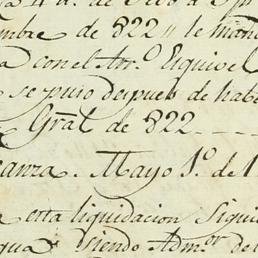 mbre de 822 „ le man
a con el Ár.º Esquivel
se puso despues de habe
Gral de 822
anza. Mayo 1.º de 1
a esta liquidacion sigui
gua siendo Adm.or de